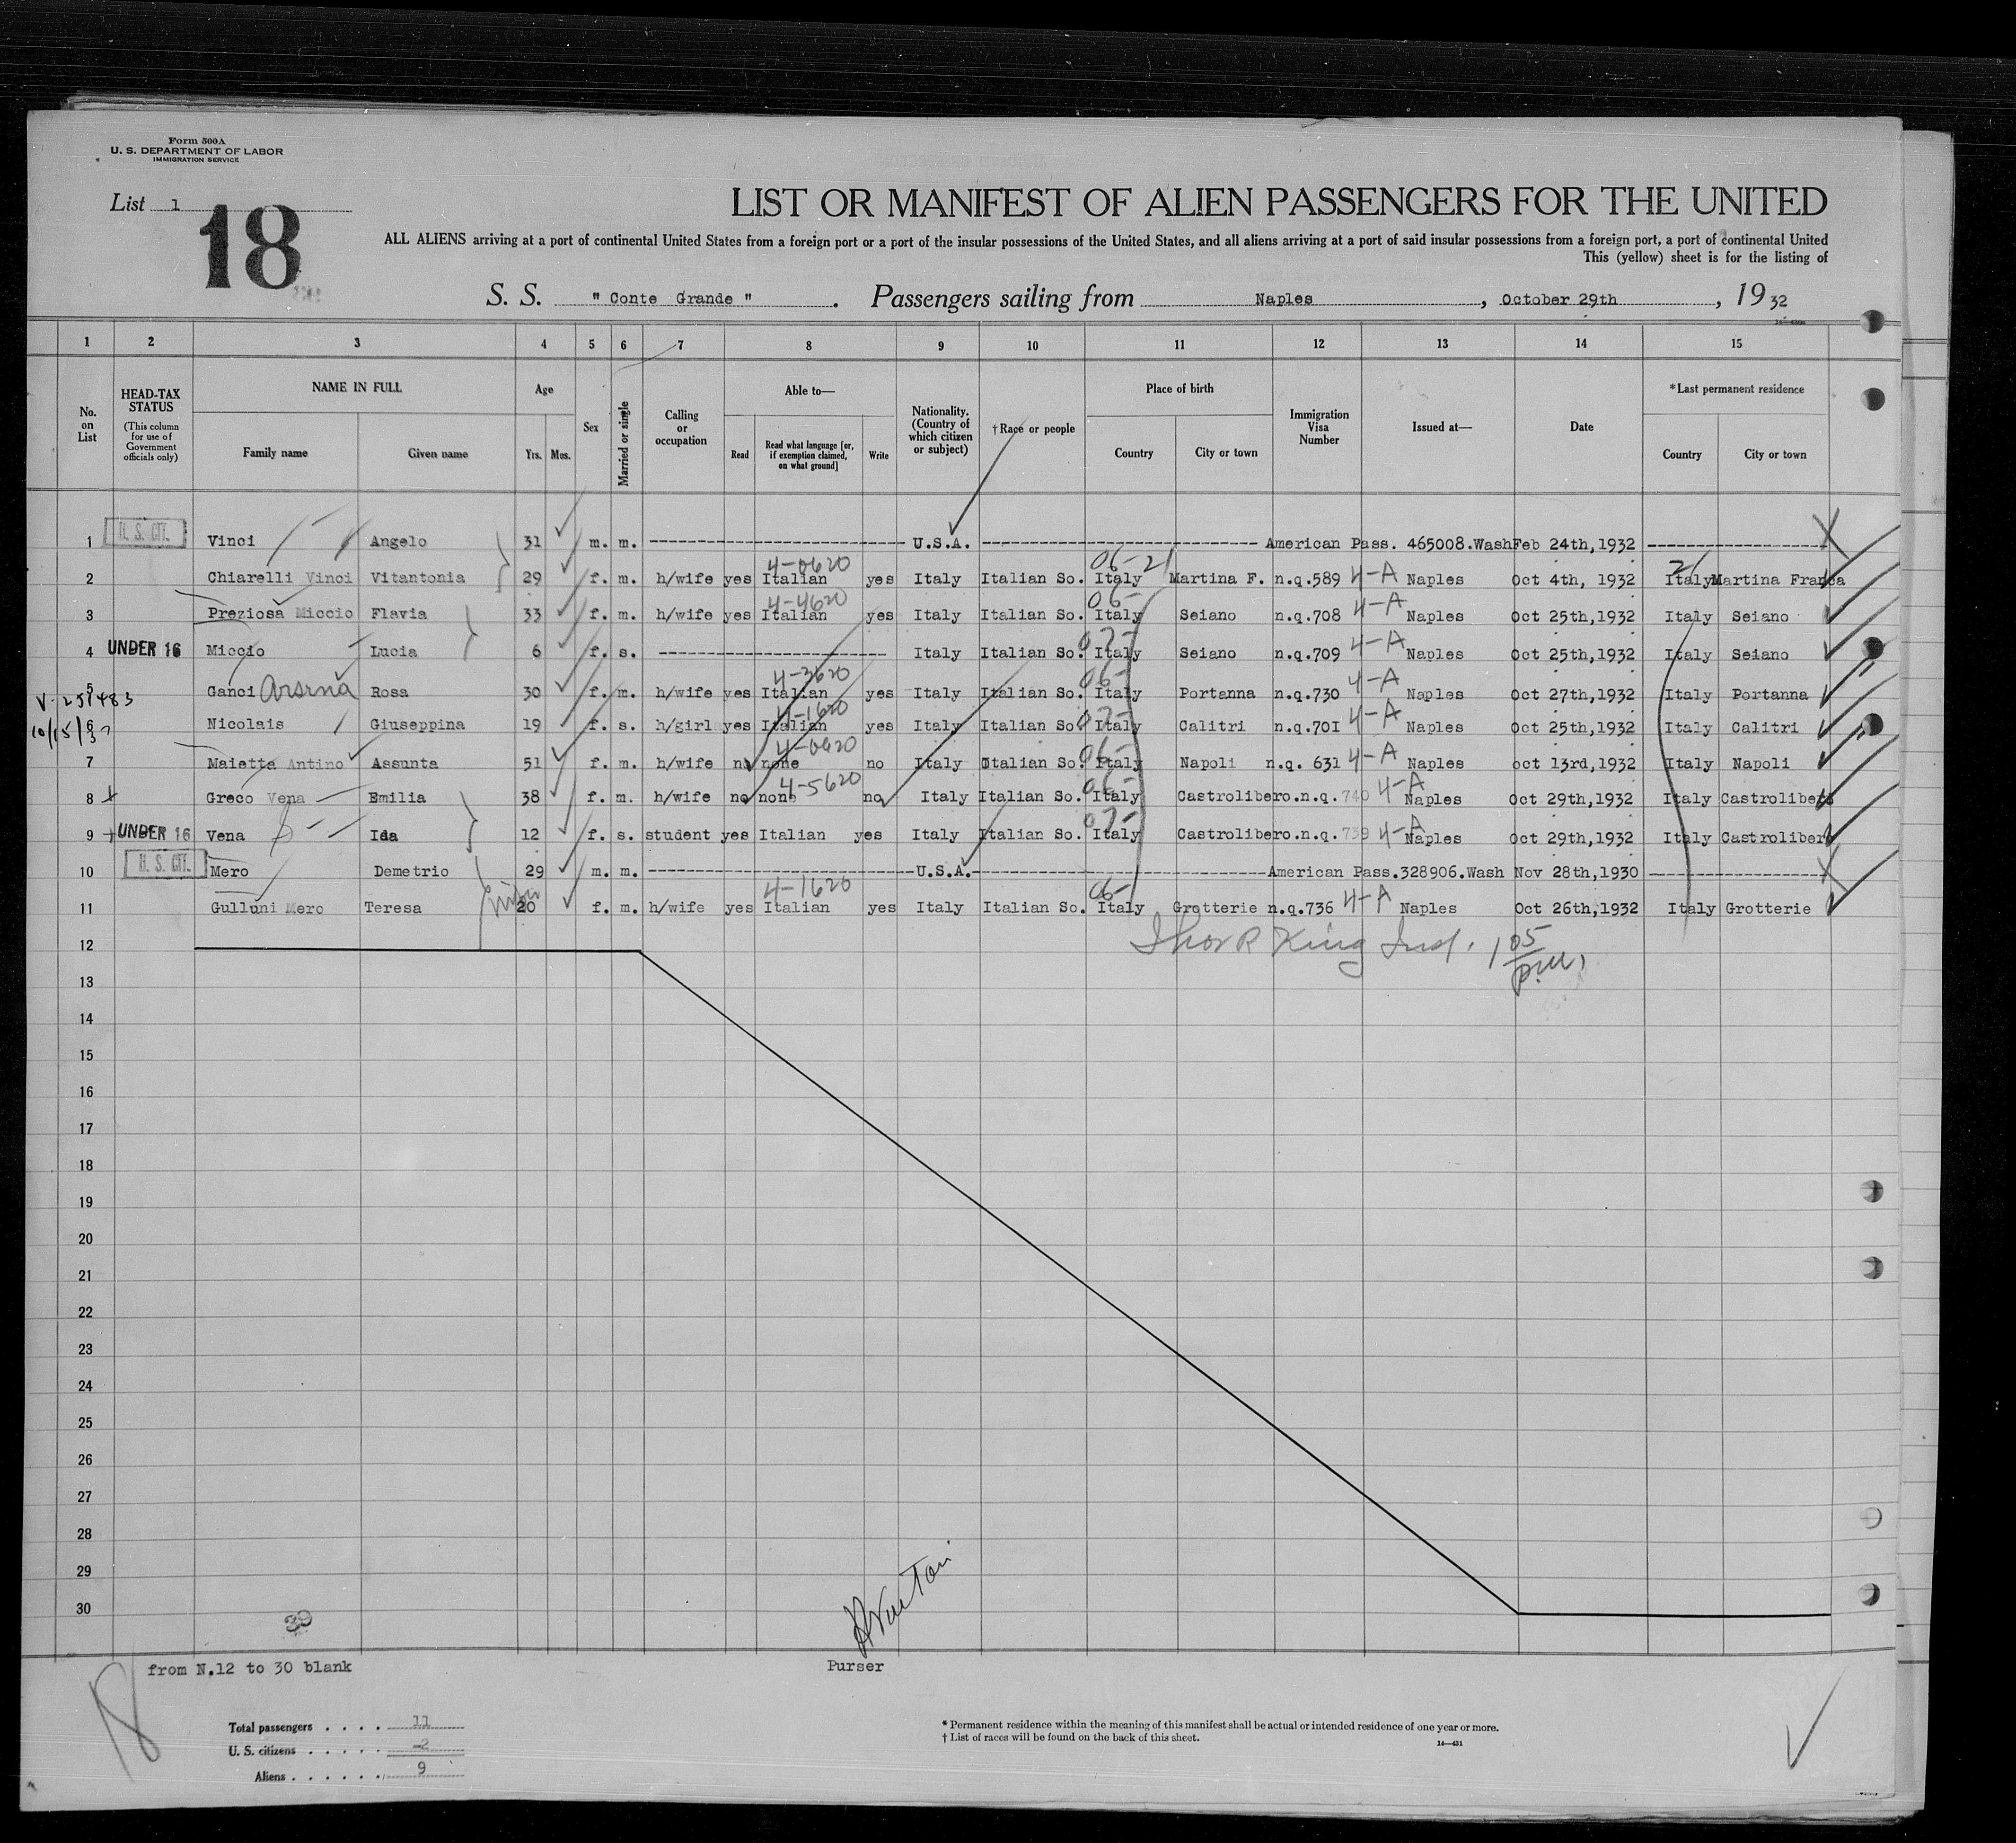 Form 500A
U. S. DEPARTMENT OF LABOR
IMMIGRATION SERVICE
List 1
18
LIST OR MANIFEST OF ALIEN PASSENGERS FOR THE UNITED
ALL ALIENS arriving at a port of continental United States from a foreign port or a port of the insular possessions of the United States, and all aliens arriving at a port of said insular possessions from a foreign port, a port of continental United
This (yellow) sheet is for the listing of
S. S. " Conte Grande " . Passengers sailing from Naples , October 29th , 19 32
1 2 3 4 5 6 7 8 9 10 11 12 13 14 15
No. on List
HEAD-TAX STATUS (This column for use of Government officials only)
NAME IN FULL
Family name Given name
Age
Yrs. Mos.
Sex
Married or single
Calling or occupation
Able to—
Read
Read what language [or, if exemption claimed, on what ground]
Write
Nationality. (Country of which citizen or subject)
†Race or people
Place of birth
Country City or town
Immigration Visa Number
Issued at—
Date
*Last permanent residence
Country City or town
1 U. S. CIT. Vinci Angelo 31 m. m. U.S.A. American Pass. 465008.Wash Feb 24th,1932
4-0620 06-21 21
2 Chiarelli Vinci Vitantonia 29 f. m. h/wife yes Italian yes Italy Italian So. Italy Martina F. n.q.589 4-A Naples Oct 4th, 1932 Italy Martina Franca
4-4620 06-
3 Preziosa Miccio Flavia 33 f. m. h/wife yes Italian yes Italy Italian So. Italy Seiano n.q.708 4-A Naples Oct 25th,1932 Italy Seiano
4 UNDER 16 Miccio Lucia 6 f. s. Italy Italian So. 07- Italy Seiano n.q.709 4-A Naples Oct 25th,1932 Italy Seiano
4-3620 06-
5 Ganci Arsena Rosa 30 f. m. h/wife yes Italian yes Italy Italian So. Italy Portanna n.q.730 4-A Naples Oct 27th,1932 Italy Portanna
V-251483
4-1620
6 Nicolais Giuseppina 19 f. s. h/girl yes Italian yes Italy Italian So. 07- Italy Calitri n.q.701 4-A Naples Oct 25th,1932 Italy Calitri
4-0620 06-
7 Maietta Antino Assunta 51 f. m. h/wife no none no Italy Italian So. Italy Napoli n.q. 631 4-A Naples Oct 13rd,1932 Italy Napoli
4-5620 06-
8 Greco Vena Emilia 38 f. m. h/wife no none no Italy Italian So. Italy Castrolibero. n.q. 740 4-A Naples Oct 29th,1932 Italy Castrolibero
07-
9 UNDER 16 Vena Ida 12 f. s. student yes Italian yes Italy Italian So. Italy Castrolibero. n.q. 739 4-A Naples Oct 29th,1932 Italy Castrolibero
10 U. S. CIT. Mero Demetrio 29 m. m. U.S.A. American Pass.328906.Wash Nov 28th,1930
4-1620 06-
11 Gulluni Mero Teresa 20 f. m. h/wife yes Italian yes Italy Italian So. Italy Grotterie n.q.736 4-A Naples Oct 26th,1932 Italy Grotterie
12 King Insp. 1 05 p.m.
13
14
15
16
17
18
19
20
21
22
23
24
25
26
27
28
29
30
30
from N.12 to 30 blank
Purser
18
Total passengers . . . . 11
U. S. citizens . . . . . 2
Aliens . . . . . . 9
* Permanent residence within the meaning of this manifest shall be actual or intended residence of one year or more.
† List of races will be found on the back of this sheet.
14—431